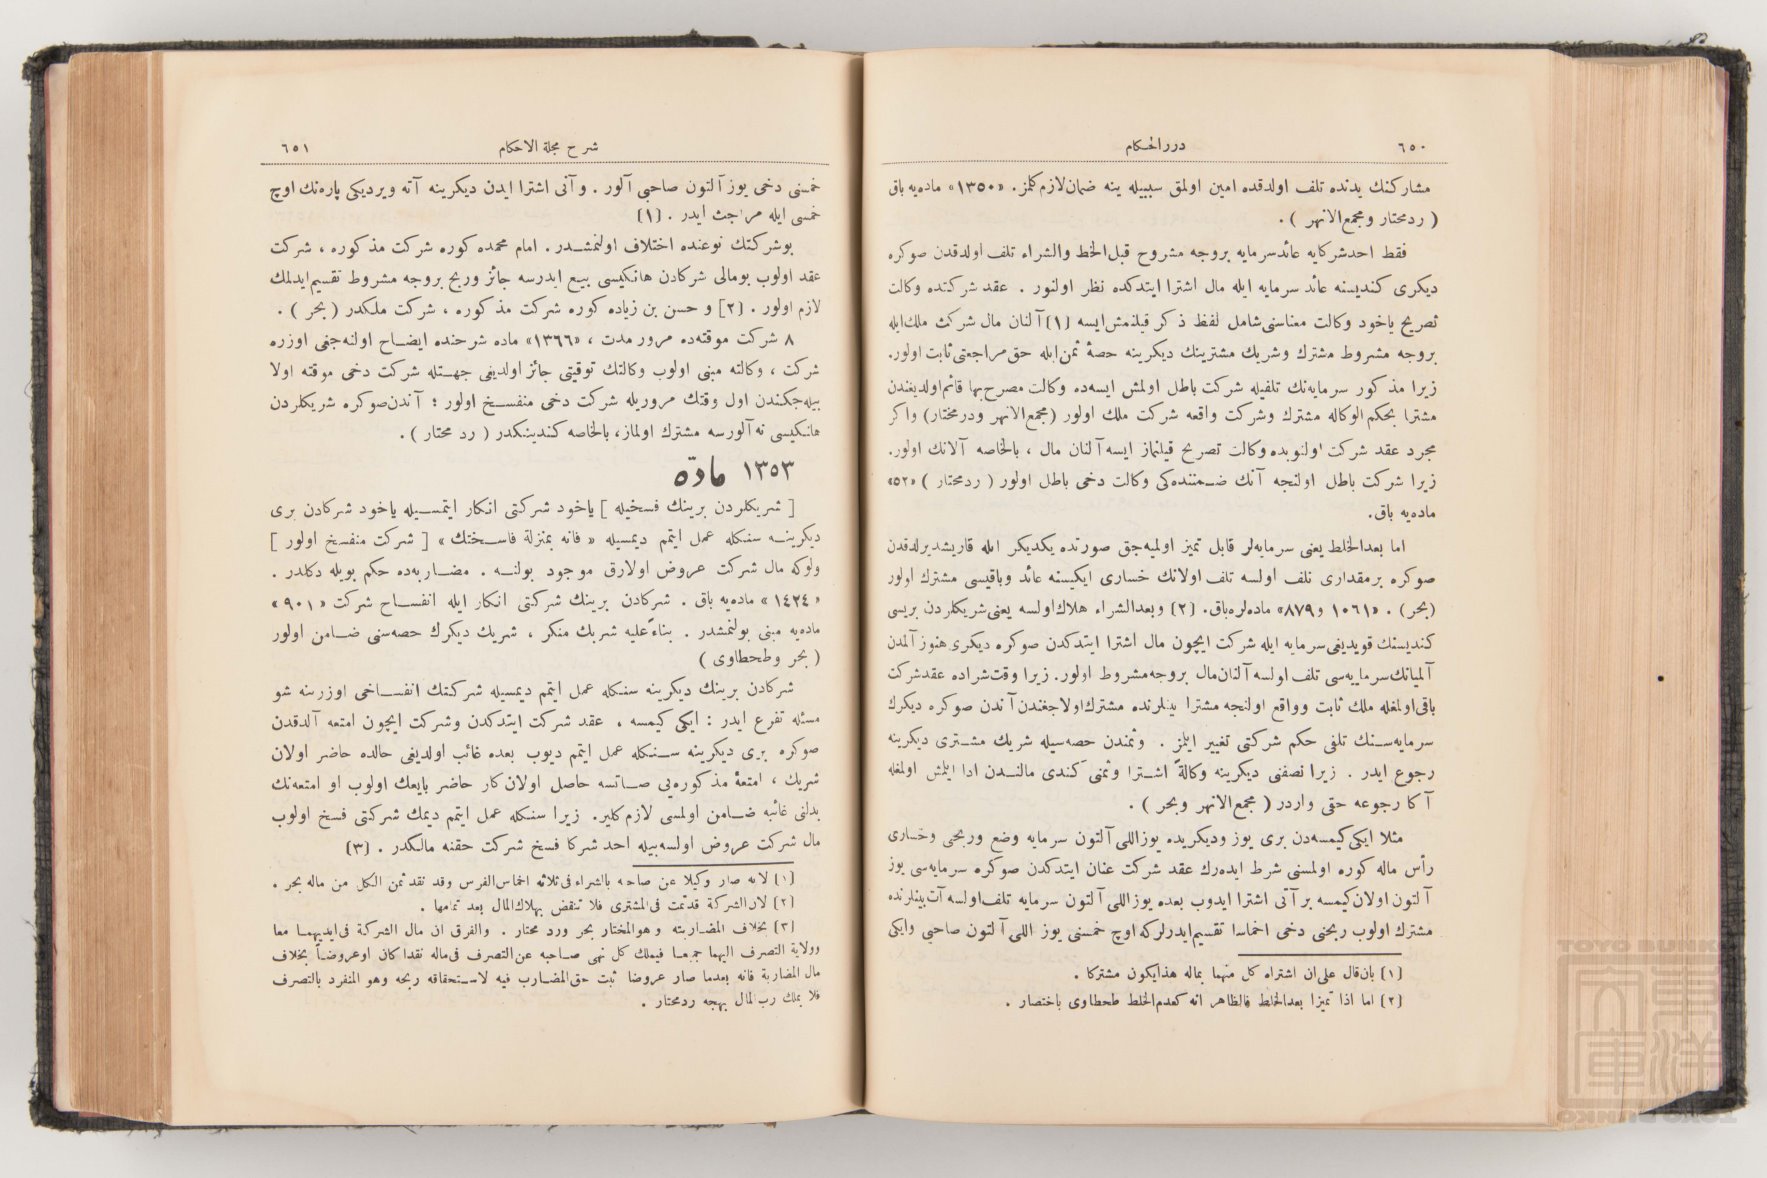 ٦٥٠
دررالحكام
مشاركنك يدنده تلف اولدقده امين اولمق سببيله ينه ضمان لازم كلمز. «١٣٥٠» ماده‌يه باق
( ردمحتار ومجمع‌الانهر ) .
فقط احدشركايه عائدسرمايه بروجه مشروح قبل‌الخلط والشراء تلف اولدقدن صوكره
ديكرى كنديسنه عائد سرمايه ايله مال اشترا ايتدكده نظر اولنور . عقد شركتده وكالت
تصريح ياخود وكالت معناسنى شامل لفظ ذكر قيلنمش‌ايسه [١] آلنان مال شركت ملك‌ايله
بروجه مشروط مشترك وشريك مشترينك ديكرينه حصهٔ ثمن‌ايله حق مراجعتى ثابت اولور.
زيرا مذكور سرمايه‌نك تلفيله شركت باطل اولمش ايسه‌ده وكالت مصرح بها قائم‌اولديغندن
مشترا بحكم الوكاله مشترك وشركت واقعه شركت ملك اولور (مجمع‌الانهر ودرمختار) واكر
مجرد عقد شركت اولنوبده وكالت تصريح قيلنماز ايسه آلنان مال ، بالخاصه آلانك اولور.
زيرا شركت باطل اولنجه آنك ضمننده‌كى وكالت دخى باطل اولور ( ردمحتار ) «٥٢»
ماده‌يه باق.
اما بعدالخلط يعنى سرمايه‌لر قابل تميز اولميه‌جق صورتده يكديكر ايله قاريشديرلدقدن
صوكره برمقدارى تلف اولسه تلف اولانك خسارى ايكيسنه عائد وباقيسى مشترك اولور
(بحر) . «١٠٦١ و٨٧٩» ماده‌لره‌باق. [٢] وبعدالشراء هلاك‌اولسه يعنى‌شريكلردن بريسى
كنديسنك قويديغى‌سرمايه ايله شركت ايچون مال اشترا ايتدكدن صوكره ديكرى هنوز آلمدن
آلميانك‌سرمايه‌سى تلف اولسه آلنان‌مال بروجه‌مشروط اولور. زيرا وقت‌شراده عقدشركت
باقى‌اولمغله ملك ثابت وواقع اولنجه مشترا بينلرنده مشترك‌اولاجغندن آندن صوكره ديكرك
سرمايه‌سنك تلفى حكم شركتى تغيير ايلمز . وثمندن حصه‌سيله شريك مشترى ديكرينه
رجوع ايدر . زيرا نصفنى ديكرينه وكالةً اشترا وثمنى كندى مالندن ادا ايلمش اولمغله
آكا رجوعه حقى واردر ( مجمع‌الانهر وبحر ) .
مثلا ايكى‌كيمسه‌دن برى يوز وديكريده يوزاللى آلتون سرمايه وضع وربحى وخسارى
رأس ماله كوره اولمسنى شرط ايده‌رك عقد شركت عنان ايتدكدن صوكره سرمايه‌سى يوز
آلتون اولان‌كيمسه بر آتى اشترا ايدوب بعده يوزاللى آلتون سرمايه تلف‌اولسه آت‌بينلرنده
مشترك اولوب ربحنى دخى اخماسا تقسيم‌ايدرلركه اوچ خمسنى يوز اللى آلتون صاحبى وايكى
[١] بان‌قال على‌ان اشتراه كل منهما بماله هذايكون مشتركا .
[٢] اما اذا تميزا بعدالخلط فالظاهر انه كعدم‌الخلط طحطاوى باختصار .
شرح مجلة الاحكام
٦٥١
خمسنى دخى يوز آلتون صاحبى آلور . وآنى اشترا ايدن ديكرينه آته ويرديكى پاره‌نك اوچ
خمسى ايله مراجعت ايدر . [١]
بوشركتك نوعنده اختلاف اولنمشدر . امام محمده كوره شركت مذكوره ، شركت
عقد اولوب بومالى شركادن هانكيسى بيع ايدرسه جائز وربح بروجه مشروط تقسيم‌ايدلمك
لازم اولور . [٢] و حسن بن زياده كوره شركت مذكوره ، شركت ملكدر ( بحر ) .
٨ شركت موقته‌ده مرور مدت ، «١٣٦٦» ماده شرحنده ايضاح اولنه‌جغى اوزره
شركت ، وكالته مبنى اولوب وكالتك توقيتى جائز اولديغى جهتله شركت دخى موقته اولا
بيله‌جكندن اول وقتك مروريله شركت دخى منفسخ اولور ؛ آندن‌صوكره شريكلردن
هانكيسى نه‌آلورسه مشترك اولماز، بالخاصه كندينكدر ( رد محتار ) .
١٣٥٣ مادّه
[ شريكلردن برينك فسخيله ] ياخود شركتى انكار ايتمسيله ياخود شركادن برى
ديكرينه سنكله عمل ايتمم ديمسيله « فانه بمنزلة فاسختك » [ شركت منفسخ اولور ]
ولوكه مال شركت عروض اولارق موجود بولنه . مضاربه‌ده حكم بويله دكلدر .
« ١٤٢٤ » ماده‌يه باق . شركادن برينك شركتى انكار ايله انفساح شركت « ٩٠١ »
ماده‌يه مبنى بولنمشدر . بناءً‌عليه شريك منكر ، شريك ديكرك حصه‌سنى ضامن اولور
( بحر وطحطاوى )
شركادن برينك ديكرينه سنكله عمل ايتمم ديمسيله شركتك انفساخى اوزرينه شو
مسئله تفرع ايدر : ايكى كيمسه ، عقد شركت ايتدكدن وشركت ايچون امتعه آلدقدن
صوكره برى ديكرينه سنكله عمل ايتمم ديوب بعده غائب اولديغى حالده حاضر اولان
شريك ، امتعهٔ مذكوره‌يى صاتسه حاصل اولان‌كار حاضر بايعك اولوب او امتعه‌نك
بدلنى غائبه ضامن اولمسى لازم‌كلير. زيرا سنكله عمل ايتمم ديمك شركتى فسخ اولوب
مال شركت عروض اولسه‌بيله احد شركا فسخ شركت حقنه مالكدر . [٣]
[١] لانه صار وكيلا عن صاحبه بالشراء فى‌ثلاثه اخماس‌الفرس وقد نقد ثمن الكل من ماله بحر .
[٢] لان‌الشركة قدتمت فى‌المشترى فلا تنقض بهلاك‌المال بعد تمامها .
[٣] بخلاف المضاربته وهوالمختار بحر ورد محتار . والفرق ان مال الشركة فى‌ايديهما معا
وولاية التصرف اليهما جميعا فيملك كل نهى صاحبه عن‌التصرف فى‌ماله نقداكان اوعروضاً بخلاف
مال المضاربة فانه بعدما صار عروضا ثبت حق‌المضارب فيه لاستحقاقه ربحه وهو المنفرد بالتصرف
فلا يملك رب‌المال بهجه ردمحتار .
TOYO BUNKO